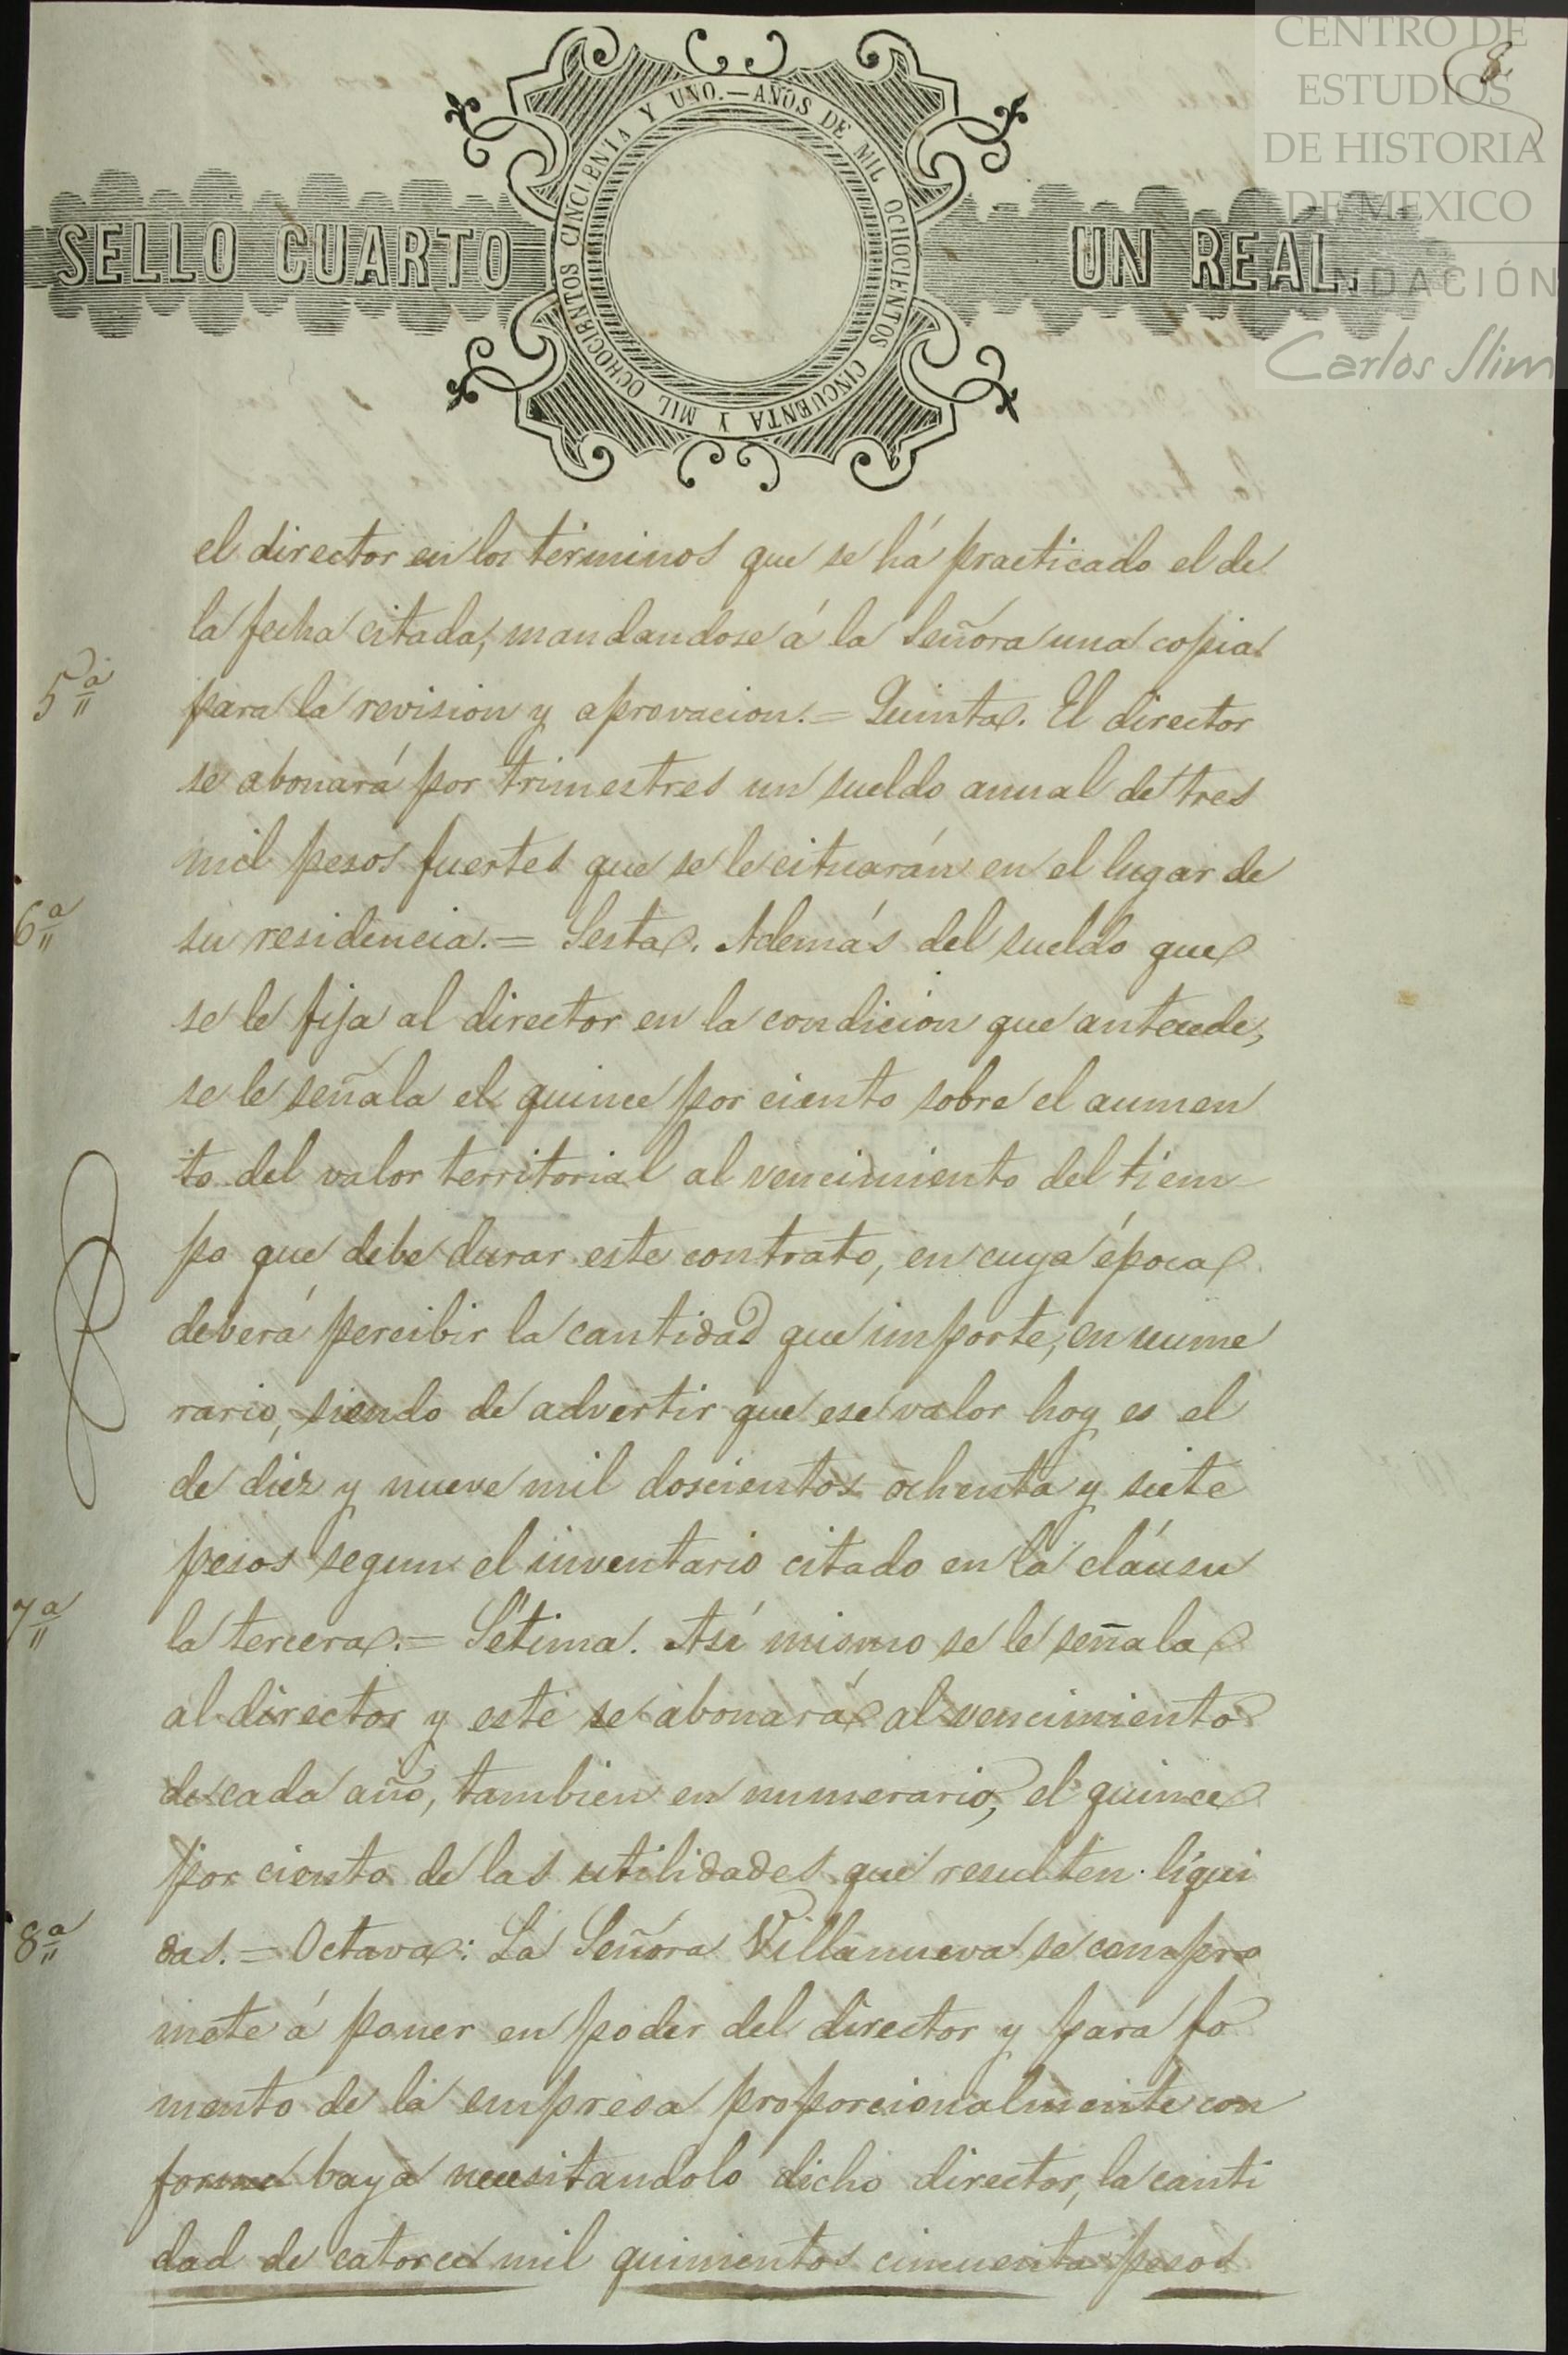 CENTRO DE
ESTUDIOS
DE HISTORIA
DE MEXICO
FUNDACIÓN
Carlos Slim
8
SELLO CUARTO
AÑOS DE MIL OCHOCIENTOS CINCUENTA Y MIL OCHOCIENTOS CINCUENTA Y UNO.—
UN REAL.
el director en los términos que se há practicado el de
la fecha citada, mandandose á la Señora una copia
5ª para la revision y aprovacion.= Quinta. El director
se abonará por trimestres un sueldo anual de tres
mil pesos fuertes que se le cituarán en el lugar de
6ª su residencia.= Sesta. Además del sueldo que
se le fija al director en la condicion que antecede,
se le señala el quince por ciento sobre el aumen
to del valor territorial al vencimiento del tiem-
po que debe durar este contrato, en cuya época
deberá percibir la cantidad que importe, en nume
rario, siendo de advertir que ese valor hoy es el
de diez y nueve mil doscientos ochenta y siete
pesos segun el inventario citado en la cláusu
7ª la tercera.= Sétima. Así mismo se le señala
al director y este se abonará al vencimiento
de cada año, tambien en numerario, el quince
por ciento de las utilidades que resulten liqui
8ª das.= Octava: La Señora Villanueva se compro
mete á poner en poder del director y para fo
mento de la empresa proporcionalmente con
forme baya necesitandolo dicho director, la canti
dad de catorce mil quinientos cincuenta pesos